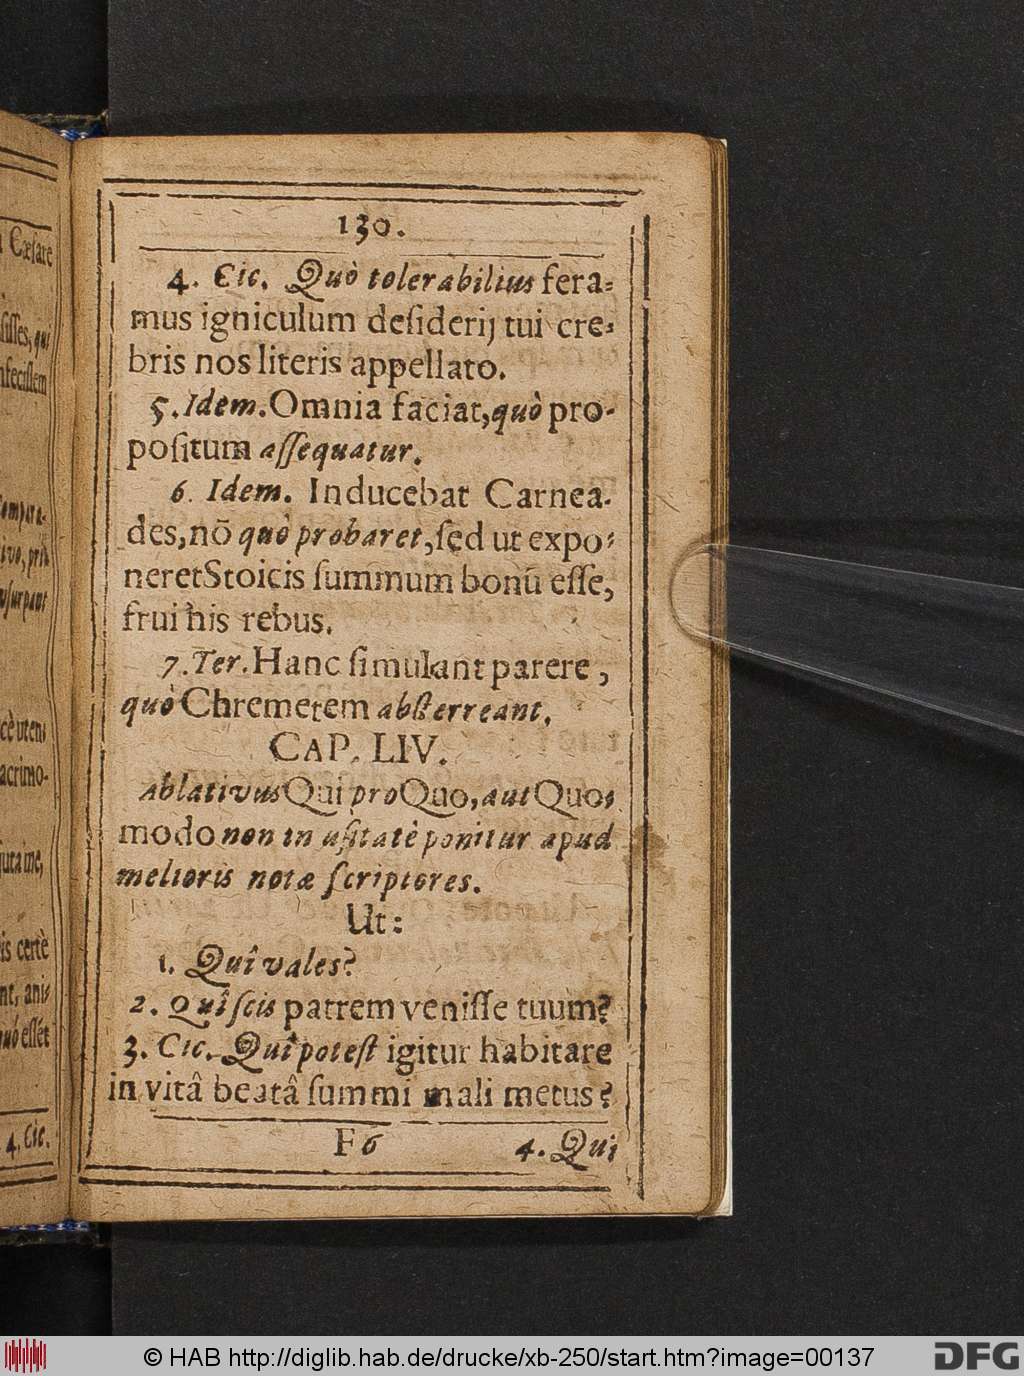 n Cæsare
sisses, qui
nfecissem
Compara-
usurpant
cè uteni
acrimo-
is certè
nt, ani-
quò essét
4. Cic.
130.
4. Cic. Quò tolerabilius fera-
mus igniculum desiderij tui cre-
bris nos literis appellato.
5. Idem. Omnia faciat, quò pro-
positum assequatur.
6. Idem. Inducebat Carnea-
des, nō quò probaret, sed ut expo-
neret Stoicis summum bonū esse,
frui his rebus.
7. Ter. Hanc simulant parere,
quò Chremetem absterreant.
CAP. LIV.
Ablativus Qui pro Quo, aut Quo-
modo non in usitatè ponitur apud
melioris notæ scriptores.
Ut:
1. Quî vales?
2. Quî scis patrem venisse tuum?
3. Cic. Quî potest igitur habitare
in vitâ beatâ summi mali metus?
F 6 4. Qui
© HAB http://diglib.hab.de/drucke/xb-250/start.htm?image=00137 DFG